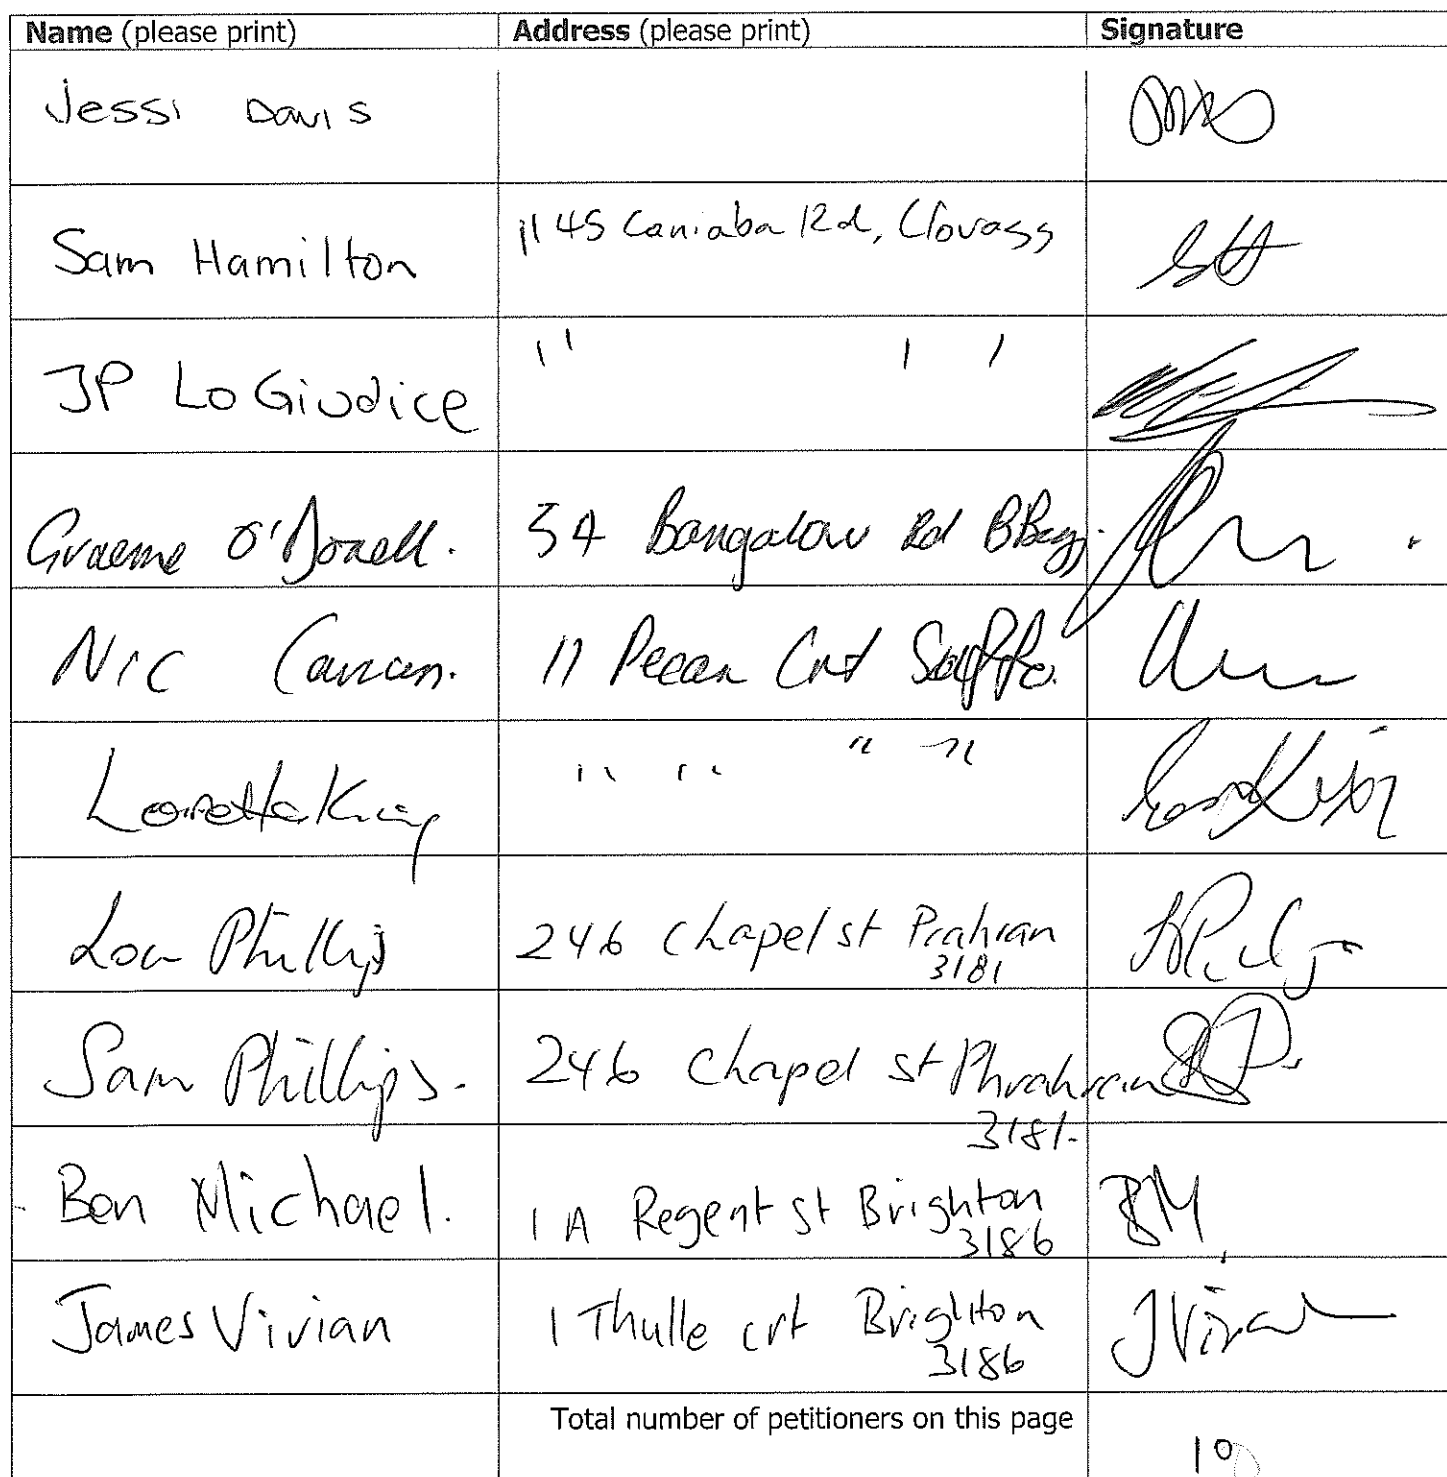 Name (please print) Address (please print) Signature
Jessi Davis
Sam Hamilton 1145 Caniaba Rd, Clovass SH
JP Lo Giudice " " "
Graeme O' 54 Bangalow Rd
Nic 11 Pecan Crt
Loretta King " " " "
Phillips 246 Chapel st Prahran
3181
Sam Phillips. 246 Chapel st Phrahran SP.
3181.
Ben Michael. 1A Regent st Brighton BM
3186
James Vivian 1 Thulle crt Brighton J Vivian
3186
Total number of petitioners on this page
10